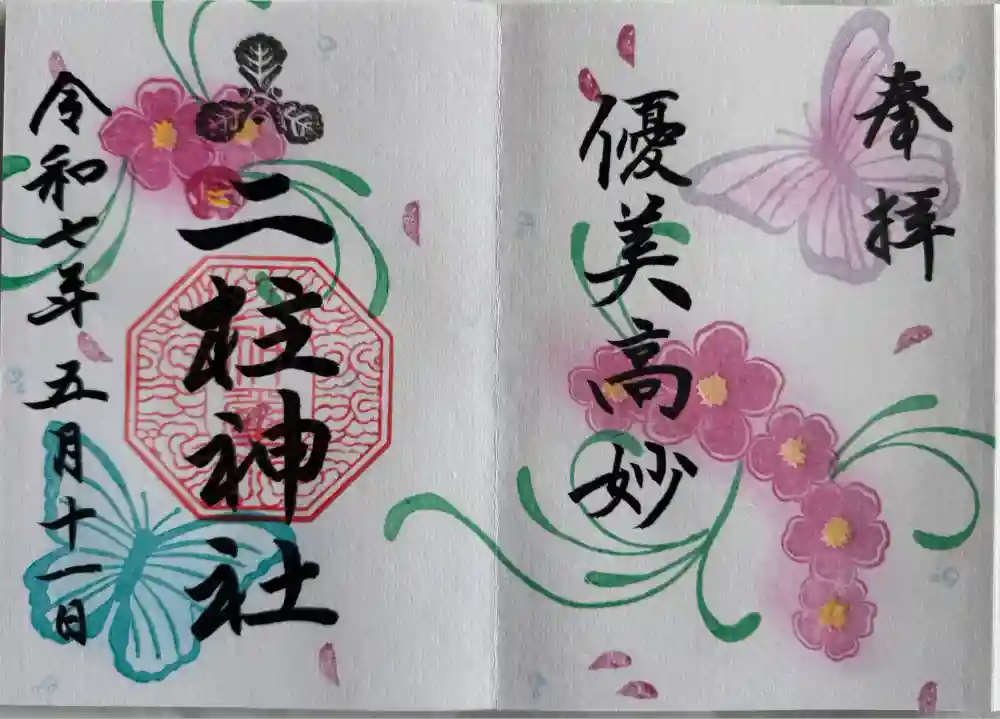 奉拝
優美高妙
二柱神社
令和七年 五月十一日